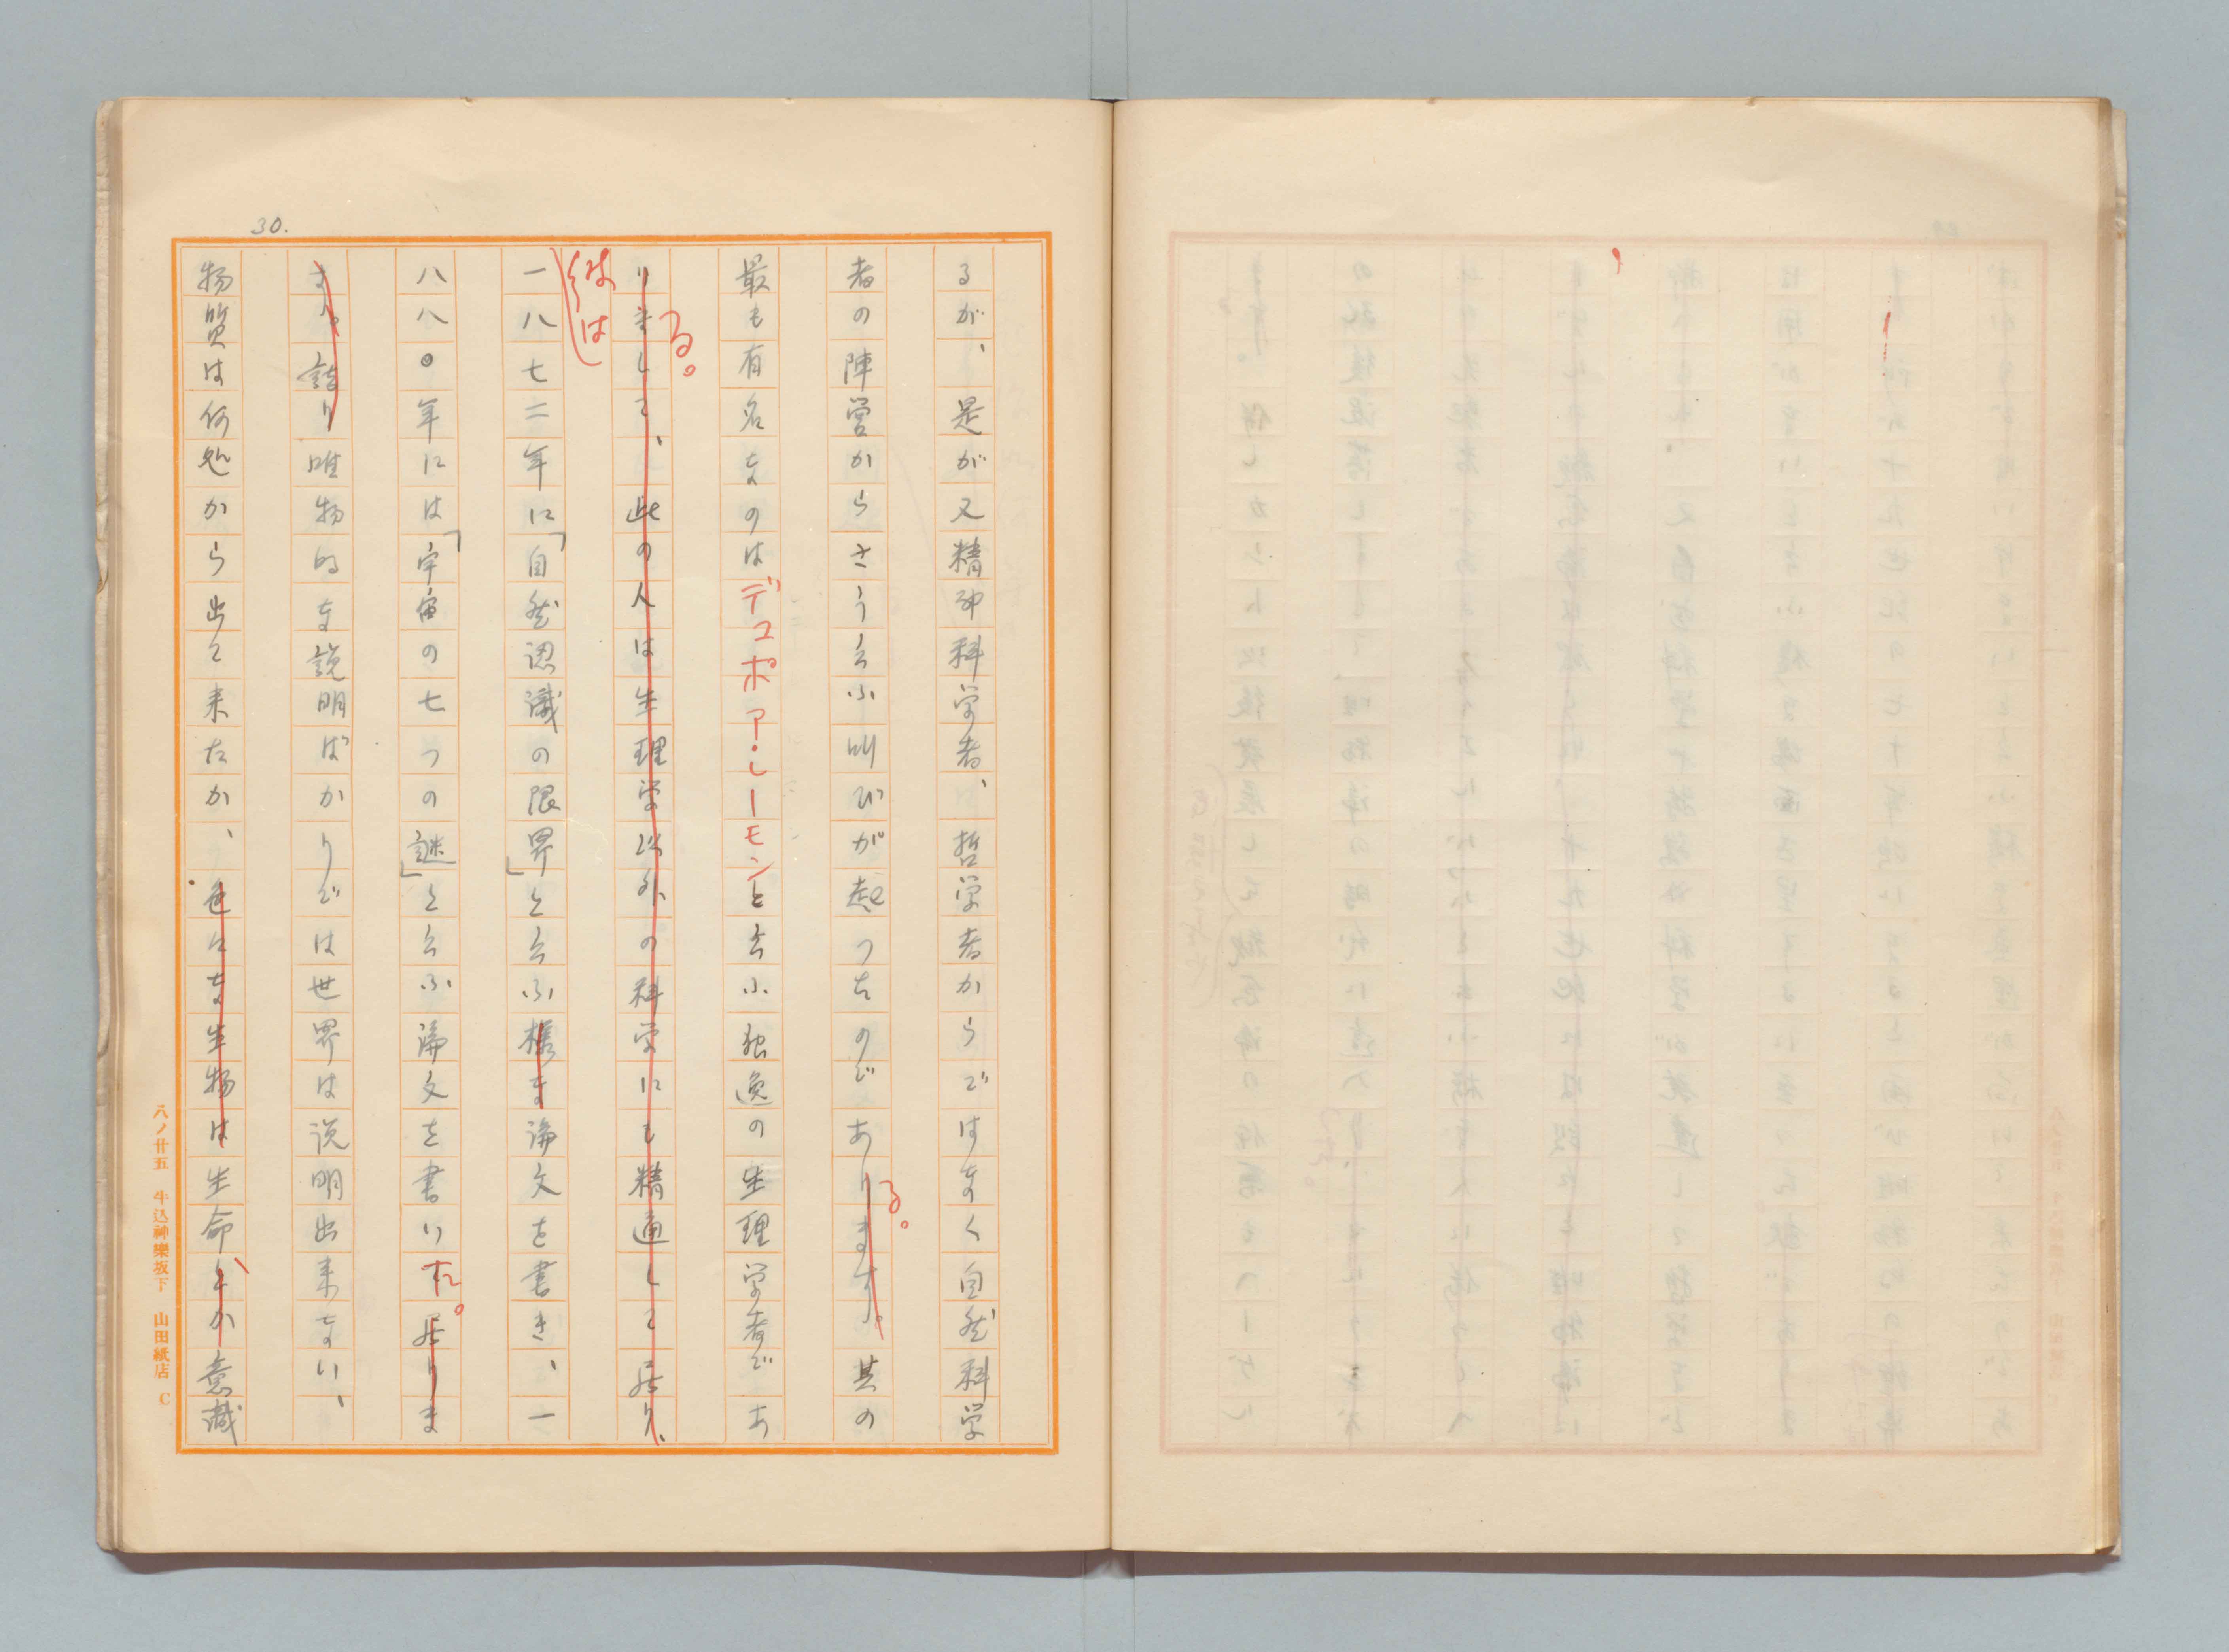 30.
るが、是が又精神科学者、哲学者からではなく自然科学
者の陣営からさう云ふ叫びが起つたのであります。る。其の
最も有名なのはデユボア・レーモンと云ふ独逸の生理学者であ
りまして、る。此の人は生理学以外の科学にも精通して居り、
彼は
一八七二年に「自然認識の限界」と云ふ様な論文を書き、一
八八〇年には「宇宙の七つの謎」と云ふ論文を書いた。居りま
す。詰り唯物的な説明ばかりでは世界は説明出来ない、
物質は何処から出て来たか、色々な生物は生命とか、意識
八ノ廿五 牛込神樂坂下 山田紙店 C